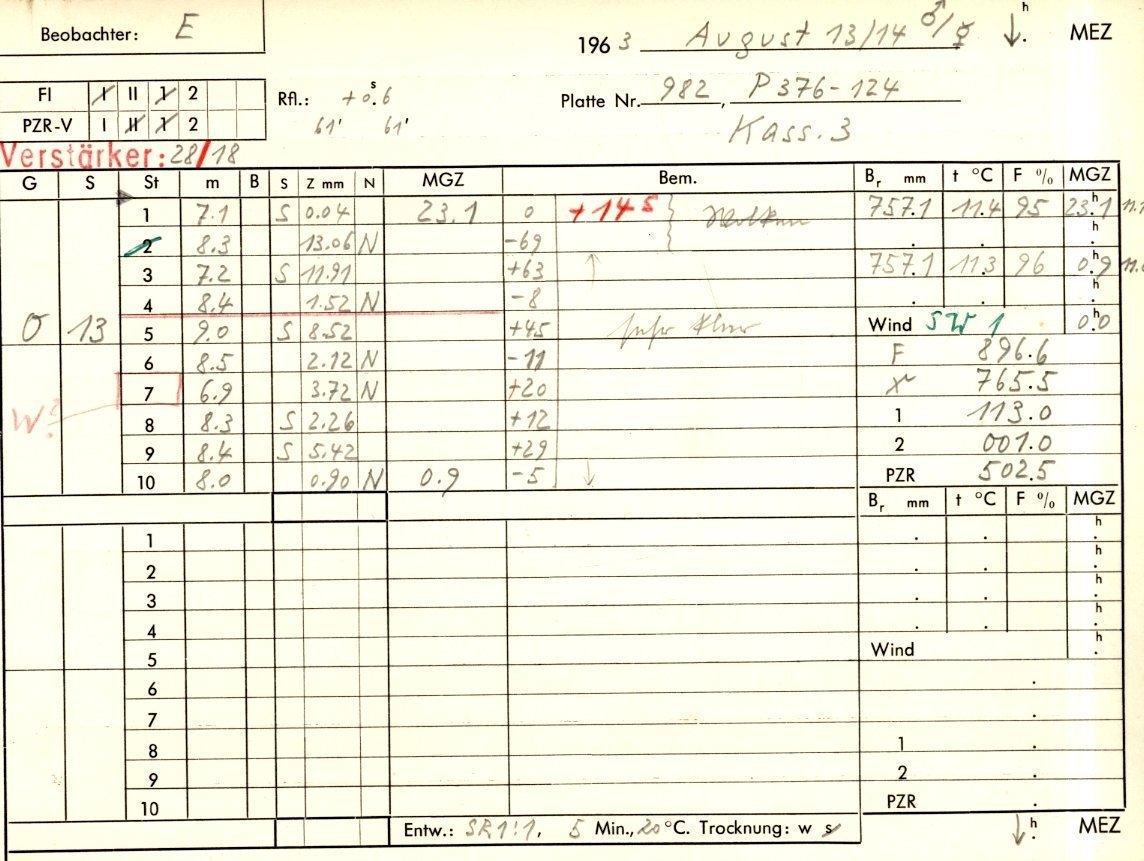 Beobachter: E
1963 August 13/14 ♂/☿ ↓ h. MEZ
FI I II 1 2
PZR-V I II 1 2
Rfl.: +0.s6
61' 61'
Platte Nr. 982, P376-124
Kass. 3
Verstärker: 28/18
G S St m B S Z mm N MGZ Bem. Br mm t °C F % MGZ
1 7.1 S 0.04 23.1 0 +14s Wolken 757.1 11.4 95 23.h1
2 8.3 13.06 N -69 . . h.
3 7.2 S 11.91 +63 ↑ 757.1 11.3 96 0.h9
4 8.4 1.52 N -8 . . h.
O 13 5 9.0 S 8.52 +45 sehr klar Wind SW 1 0.h0
6 8.5 2.12 N -11 F 896.6
7 6.9 3.72 N +20 765.5
W? 8 8.3 S 2.26 +12 1 113.0
9 8.4 S 5.42 +29 2 001.0
10 8.0 0.90 N 0.9 -5 ↓ PZR 502.5
Br mm t °C F % MGZ
1 . . h.
2 . . h.
3 . . h.
4 . . h.
5 Wind h.
6 .
7 .
8 1 .
9 2 .
10 PZR .
Entw.: SR1:1, 5 Min., 20 °C. Trocknung: w s ↓ h. MEZ